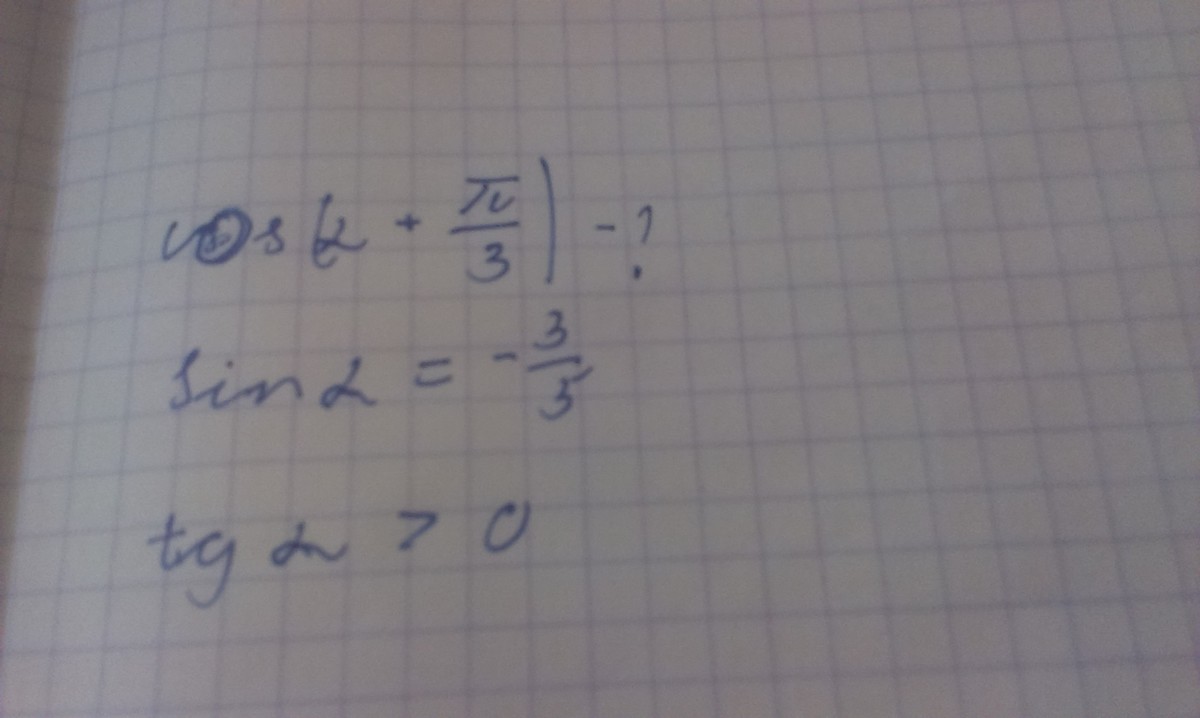 cos(α + π/3) - ?
sin α = - 3/5
tg α > 0